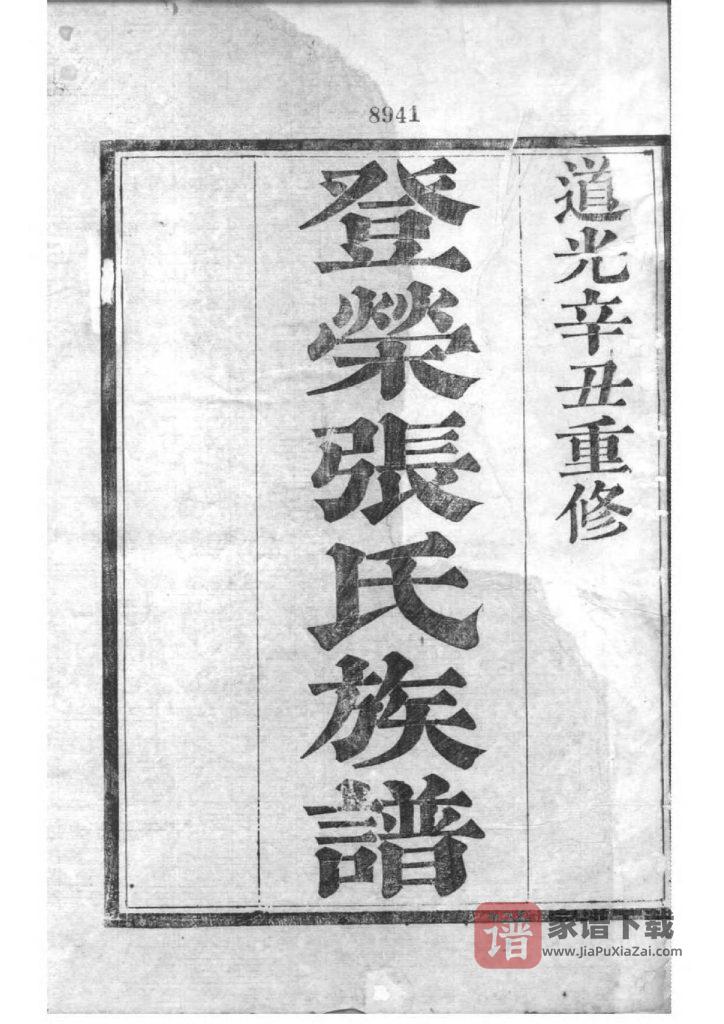 8941
道光辛丑重修
登榮張氏族譜
谱
家谱下载
www.JiaPuXiaZai.com